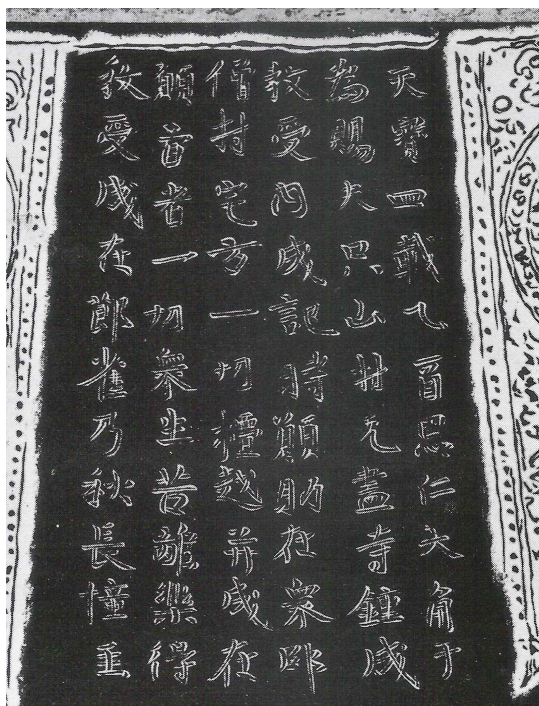 天寶四載乙酉思仁大角干
為賜夫只山村无盡寺鍾成
教受内成記時願助在衆邸
僧村宅方一切檀越并成在
願旨者一切衆生苦離樂得
教受成在節雀乃秋長幢主